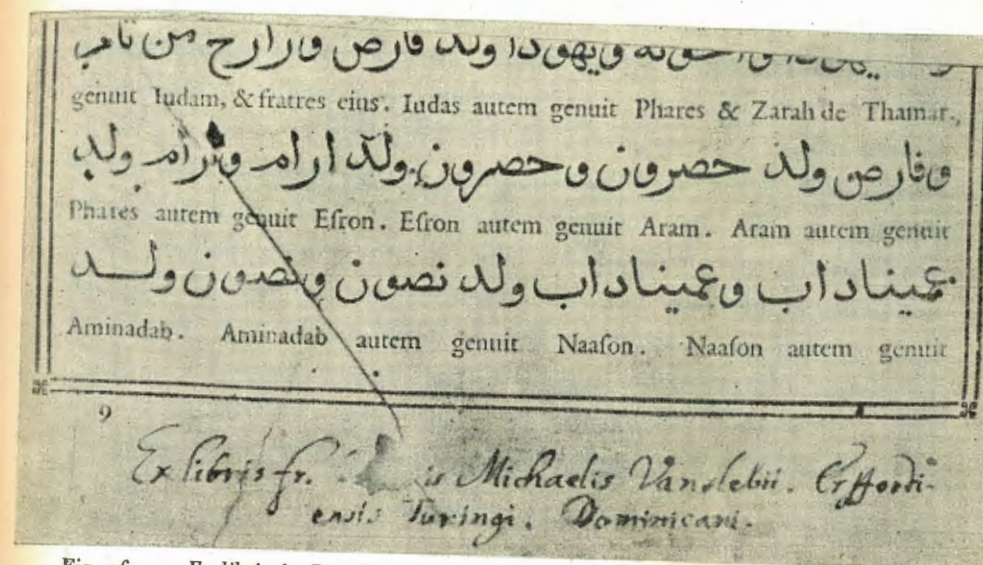 ويهودا ولد فارص وزارح من تامر
genuit Iudam, & fratres eius. Iudas autem genuit Phares & Zarah de Thamar.,
وفارص ولد حصرون وحصرون ولد ارام وارام ولد
Phares autem genuit Eſron. Eſron autem genuit Aram. Aram autem genuit
عميناداب وعميناداب ولد نصون ونصون ولد
Aminadab. Aminadab autem genuit Naaſon. Naaſon autem genuit
9
Ex libris fr. is Michaelis Vanslebii. Erffordi-
ensis Turingi. Dominicani.